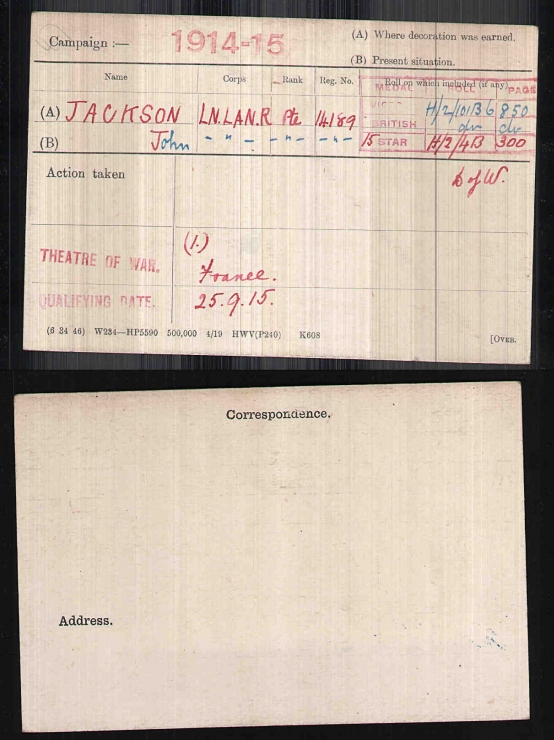 Campaign :— 1914-15
(A) Where decoration was earned.
(B) Present situation.
Name Corps Rank Reg. No. Roll on which included (if any)
MEDAL ROLL PAGE
(A) JACKSON LN.LAN.R Pte 14189 VICTORY H/2/101B6 850
BRITISH do do
(B) John — " — — " — — " — 15 STAR H/2/4B 300
Action taken D of W.
THEATRE OF WAR. (1.) France.
QUALIFYING DATE. 25.9.15.
(6 34 46) W234—HP5590 500,000 4/19 HWV(P240) K608 [OVER.
Correspondence.
Address.